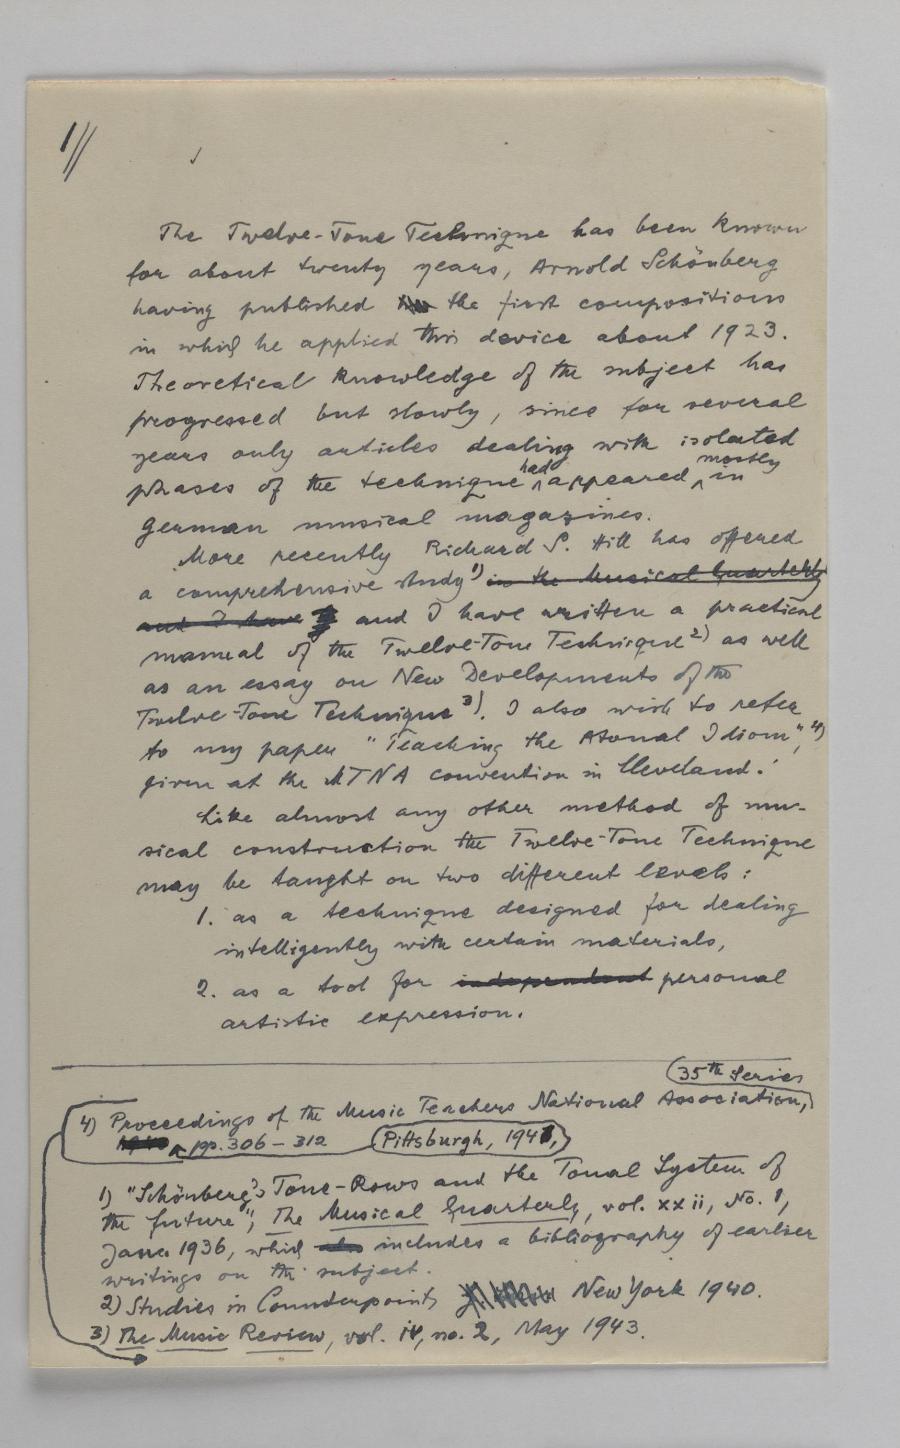 1//
The Twelve-Tone Technique has been known
for about twenty years, Arnold Schönberg
having published the first compositions
in which he applied this device about 1923.
Theoretical knowledge of the subject has
progressed but slowly, since for several
years only articles dealing with isolated
phases of the technique had appeared mostly in
German musical magazines.
More recently Richard S. Hill has offered
a comprehensive study 1) in the Musical Quarterly
and I have and I have written a practical
manual of the Twelve-Tone Technique 2) as well
as an essay on New Developments of the
Twelve-Tone Technique 3). I also wish to refer
to my paper "Teaching the Atonal Idiom", 4)
given at the MTNA convention in Cleveland.
Like almost any other method of mu-
sical construction the Twelve-Tone Technique
may be taught on two different levels:
1. as a technique designed for dealing
intelligently with certain materials,
2. as a tool for independent personal
artistic expression.
35th Series
4) Proceedings of the Music Teachers National Association,
1940 pp. 306-312 Pittsburgh, 1941,
1) "Schönberg's Tone-Rows and the Tonal System of
the future", The Musical Quarterly, vol. xxii, No. 1,
Jan. 1936, which also includes a bibliography of earlier
writings on the subject.
2) Studies in Counterpoint, New York 1940.
3) The Music Review, vol. iv, no. 2, May 1943.